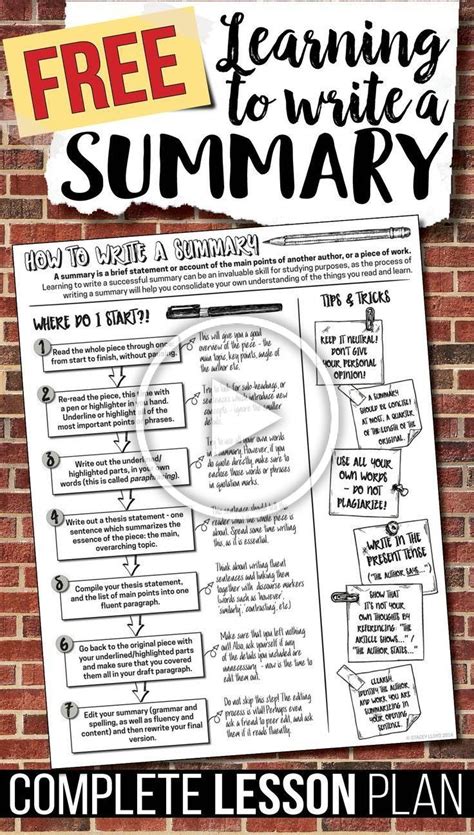 FREE
Learning
to write a
SUMMARY
HOW TO WRITE A SUMMARY
A summary is a brief statement or account of the main points of another author, or a piece of work.
Learning to write a successful summary can be an invaluable skill for studying purposes, as the process of
writing a summary will help you consolidate your own understanding of the things you read and learn.
WHERE DO I START?!
1
Read the whole piece through once
from start to finish, without pausing.
This will give you a good
overview of the piece - the
main topic, key points, angle of
the author etc.
2
Re-read the piece, this time with
a pen or highlighter in hand.
Underline or highlight all of the
most important points or phrases.
for sub-headings, or
introduce new
3
Write out the underlined/
highlighted parts, in your own
words (this is called paraphrasing).
own words
summary. However, if you
do quote directly, make sure to
enclose those words or phrases
in quotation marks.
4
Write out a thesis statement - one
sentence which summarizes the
essence of the piece: the main,
overarching topic.
This sentence should tell the
reader what the whole piece is
about. Spend some time writing
this, as it is essential.
5
Compile your thesis statement,
and the list of main points into one
fluent paragraph.
Think about writing fluent
sentences and linking them
together with discourse markers
(words such as 'however',
'similarly', 'contrasting', etc.)
6
Go back to the original piece with
your underlined/highlighted parts
and make sure that you covered
them all in your draft paragraph.
Make sure that you left nothing
out! Also, ask yourself if any
of the details you included are
unnecessary - now is the time to
edit them out.
7
Edit your summary (grammar and
spelling, as well as fluency and
content) and then rewrite your final
version.
Do not skip this step! The editing
process is vital! Perhaps even
ask a friend to peer edit, and ask
them if it reads fluently.
TIPS & TRICKS
KEEP IT NEUTRAL!
DON'T GIVE
YOUR PERSONAL
OPINION!
A SUMMARY
SHOULD BE CONCISE:
AT MOST, A QUARTER
OF THE LENGTH OF THE
ORIGINAL.
USE ALL YOUR
OWN WORDS
- DO NOT
PLAGIARIZE!
WRITE IN
THE PRESENT TENSE
("THE AUTHOR SAYS...")
SHOW THAT
IT'S NOT YOUR
OWN THOUGHTS BY
REFERENCING: "THE
ARTICLE SHOWS..." /
"THE AUTHOR STATES..."
CLEARLY
IDENTIFY THE AUTHOR
AND WORK YOU ARE
SUMMARIZING IN
YOUR OPENING
SENTENCE.
© STACEY LLOYD 2014
COMPLETE LESSON PLAN